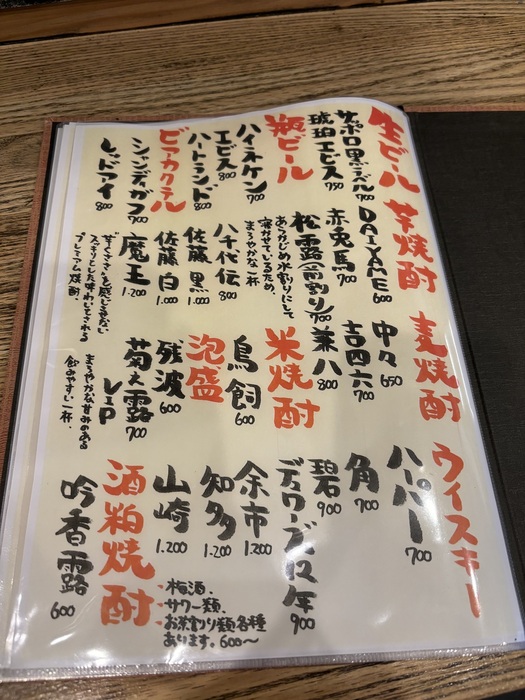 生ビール
サッポロ黒ラベル 700
琥珀ヱビス 750
瓶ビール
ハイネケン 700
ヱビス 800
ハートランド 800
ビアカクテル
シャンディガフ 700
レッドアイ 800
芋焼酎
DAIYAME 600
赤兎馬 700
松露(前割り) 700
あらかじめ水割りにして
寝かせているため、
まろやかな一杯
八千代伝 800
佐藤 黒 1.000
佐藤 白 1.000
魔王 1.200
芋くささを感じさせない
スッキリとした味わいでされる
プレミアム焼酎。
麦焼酎
中々 650
吉四六 700
兼八 800
米焼酎
鳥飼 600
泡盛
残波 600
菊之露 V.I.P 700
まろやかな甘みのある
飲みやすい一杯。
ウイスキー
ハーパー 700
角 700
碧 900
デュワーズ12年 900
余市 1.200
知多 1.200
山崎 1.200
酒粕焼酎
吟香露 600
・梅酒
・サワー類
・お茶割り類 各種
あります。600〜